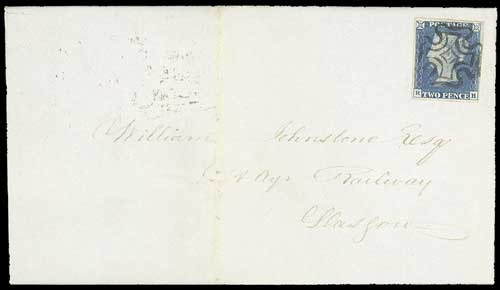 POSTAGE
TWO PENCE
William Johnstone Esq
& Ayr Railway
Glasgow